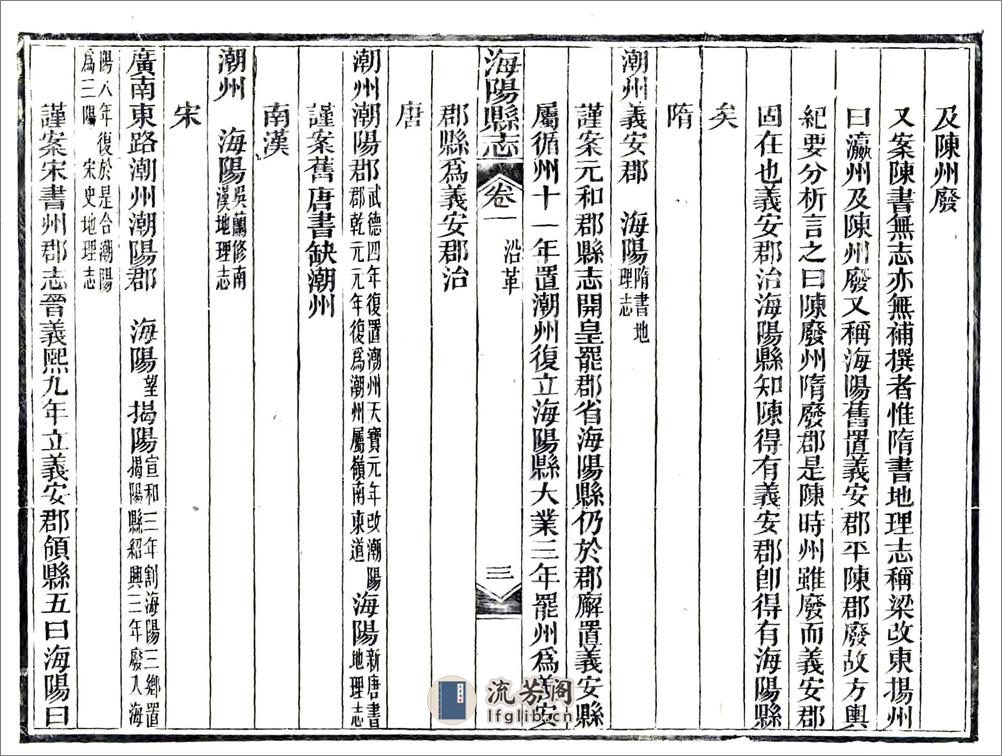 及陳州廢
又案陳書無志亦無補撰者惟隋書地理志稱梁改東揚州
曰瀛州及陳州廢又稱海陽舊置義安郡平陳郡廢故方輿
紀要分析言之曰陳廢州隋廢郡是陳時州雖廢而義安郡
固在也義安郡治海陽縣知陳得有義安郡卽得有海陽縣
矣
隋
潮州義安郡 海陽隋書地理志
謹案元和郡縣志開皇罷郡省海陽縣仍於郡廨置義安縣
屬循州十一年置潮州復立海陽縣大業三年罷州為義安
海陽縣志 卷一 沿革 三
郡縣為義安郡治
唐
潮州潮陽郡武德四年復置潮州天寶元年改潮陽郡乾元元年復為潮州屬嶺南東道 海陽新唐書地理志
謹案舊唐書缺潮州
南漢
潮州 海陽吳蘭修南漢地理志
宋
廣南東路潮州潮陽郡 海陽望揭陽宣和三年割海陽三鄉置揭陽縣紹興二年廢入海
陽八年復於是合潮陽為三陽 宋史地理志
謹案宋書州郡志晉義熙九年立義安郡領縣五曰海陽曰
流芳阁
lfglib.cn